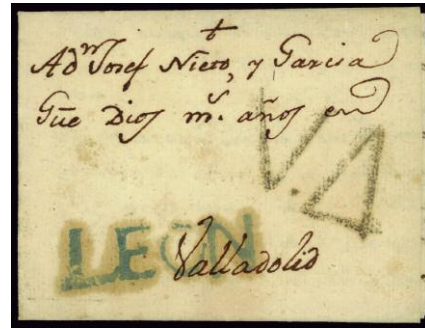 A Dn Josef Nieto, y Garcia
Gue Dios ms. años en
V.A
LEON
Valladolid